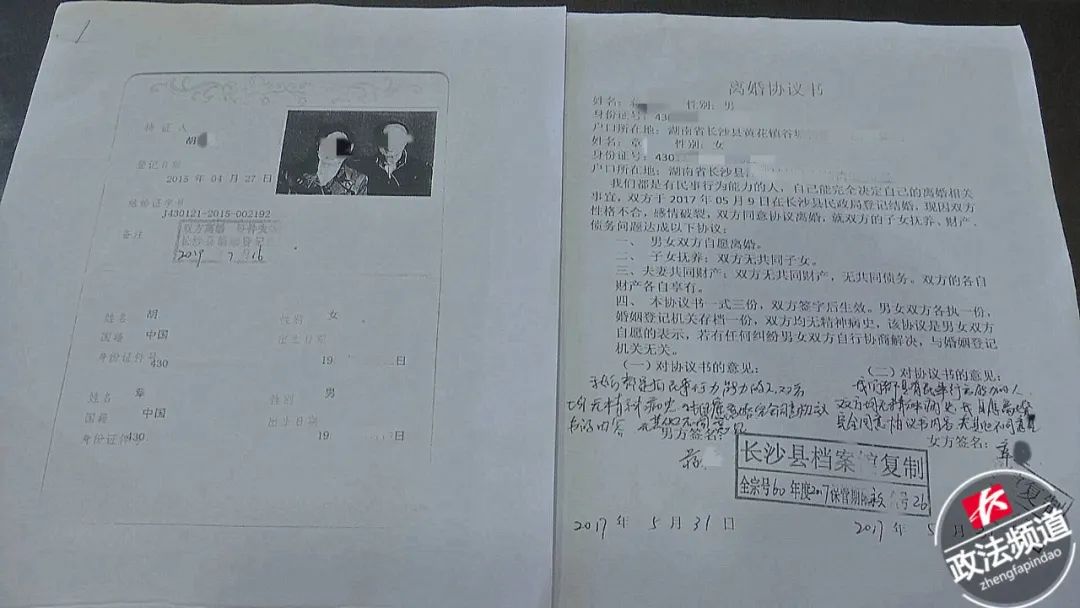 持证人
胡
登记日期
2015年04月27日
结婚证字号
J430121-2015-002192
备注
双方离婚
长沙县婚姻登记
2017 7 16
姓名 胡 性别 女
国籍 中国 出生日期
身份证件号 430 19 日
姓名 章 性别 男
国籍 中国 出生日期
身份证件 430 19 日
离婚协议书
姓名: 性别:男
身份证号:430
户口所在地:湖南省长沙县黄花镇谷
姓名:章 性别:女
身份证号:430
户口所在地:湖南省长沙县
我们都是有民事行为能力的人,自己能完全决定自己的离婚相关
事宜,双方于2017年05月9日在长沙县民政局登记结婚,现因双方
性格不合,感情破裂,双方同意协议离婚,就双方的子女抚养、财产、
债务问题达成以下协议:
一、 男女双方自愿离婚。
二、 子女抚养:双方无共同子女。
三、夫妻共同财产:双方无共同财产,无共同债务。双方的各自
财产各自享有。
四、 本协议书一式三份,双方签字后生效。男女双方各执一份,
婚姻登记机关存档一份,双方均无精神病史,该协议是男女双方
自愿的表示,若有任何纠纷男女双方自行协商解决,与婚姻登记
机关无关。
(一)对协议书的意见: (二)对协议书的意见:
男方签名: 女方签名:
章
长沙县档案 复制
全宗号60年度2017保管期限永 号26
2017年5月31日 2017年5月
政法频道
zhengfapindao